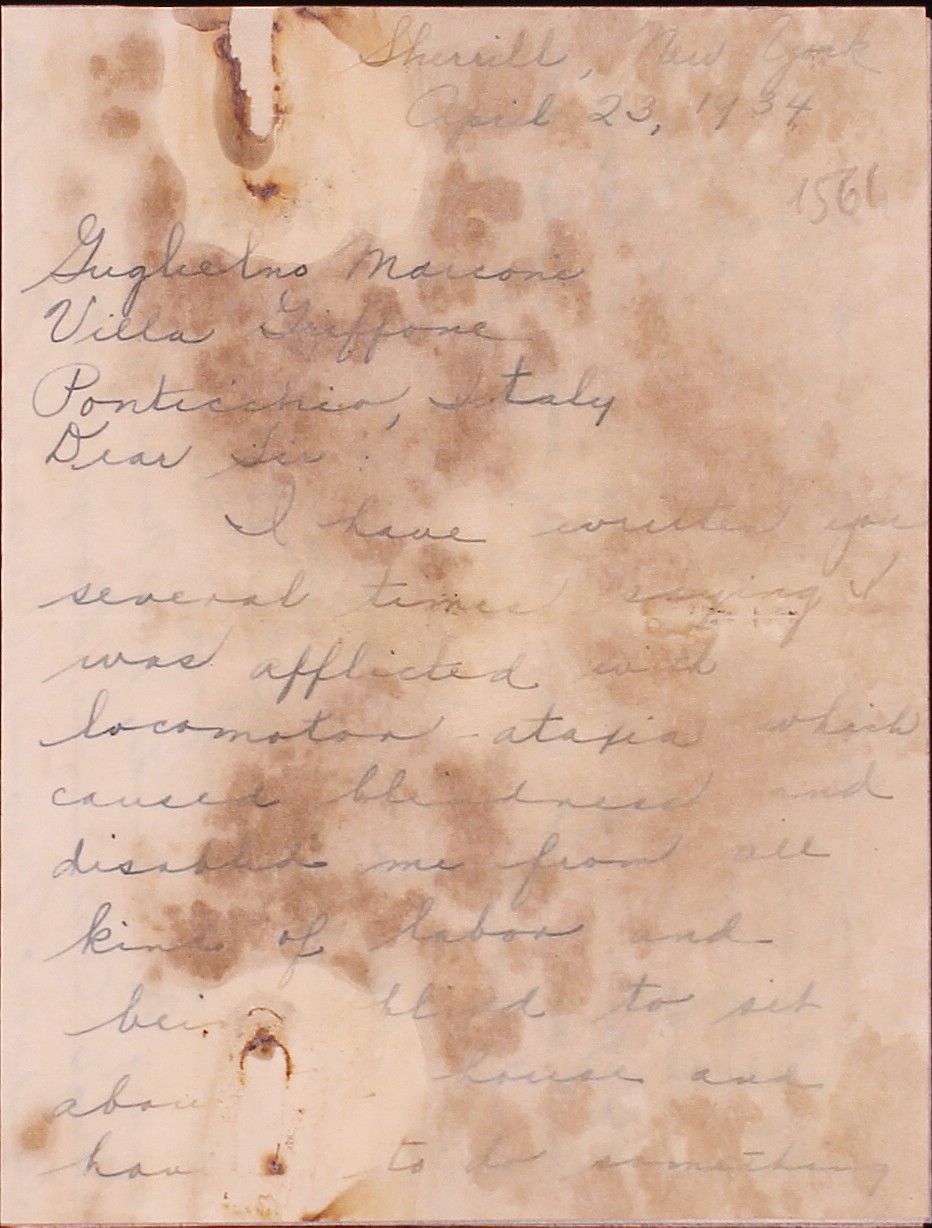 Sherrill, New York
April 23, 1934
156
Guglielmo Marconi
Villa Griffone
Ponticchio, Italy
Dear Sir:
I have written you
several times saying I
was afflicted with
locomotor ataxia which
caused blindness and
disabled me from all
kind of labor and
being to sit
house and
to do something